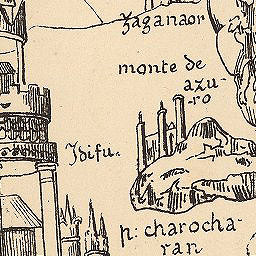 zaganaor
monte de
azu-
ro
Idifu.
h: charocha-
ran